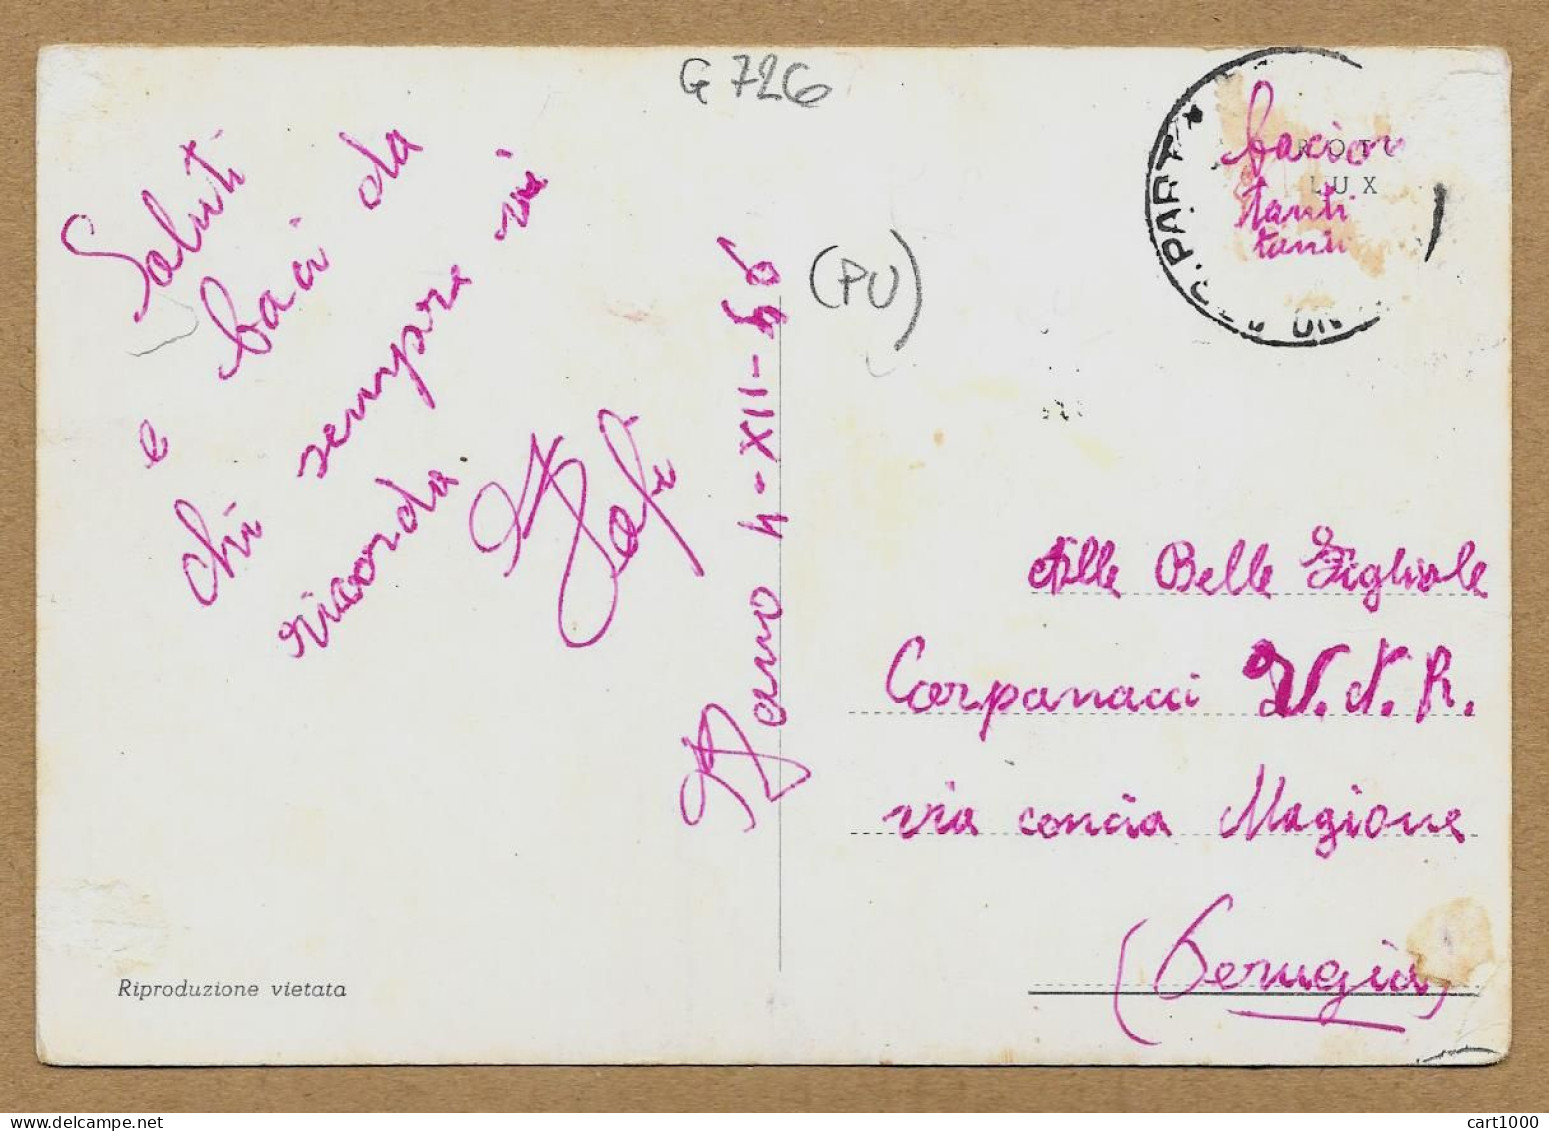 G 726
Saluti
e baci da
chi sempre vi
ricorda
Fano 4-XII-56
(PU)
PART
bacion
tanti
tanti
LUX
Alle Belle Figliole
Carpanacci V. N. R.
via concia Magione
(Perugia)
Riproduzione vietata
cart1000